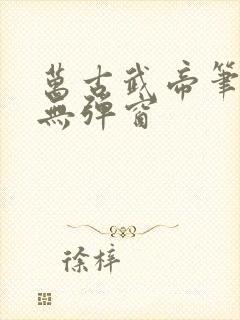 萬古武帝筆
無彈窗
徐梓